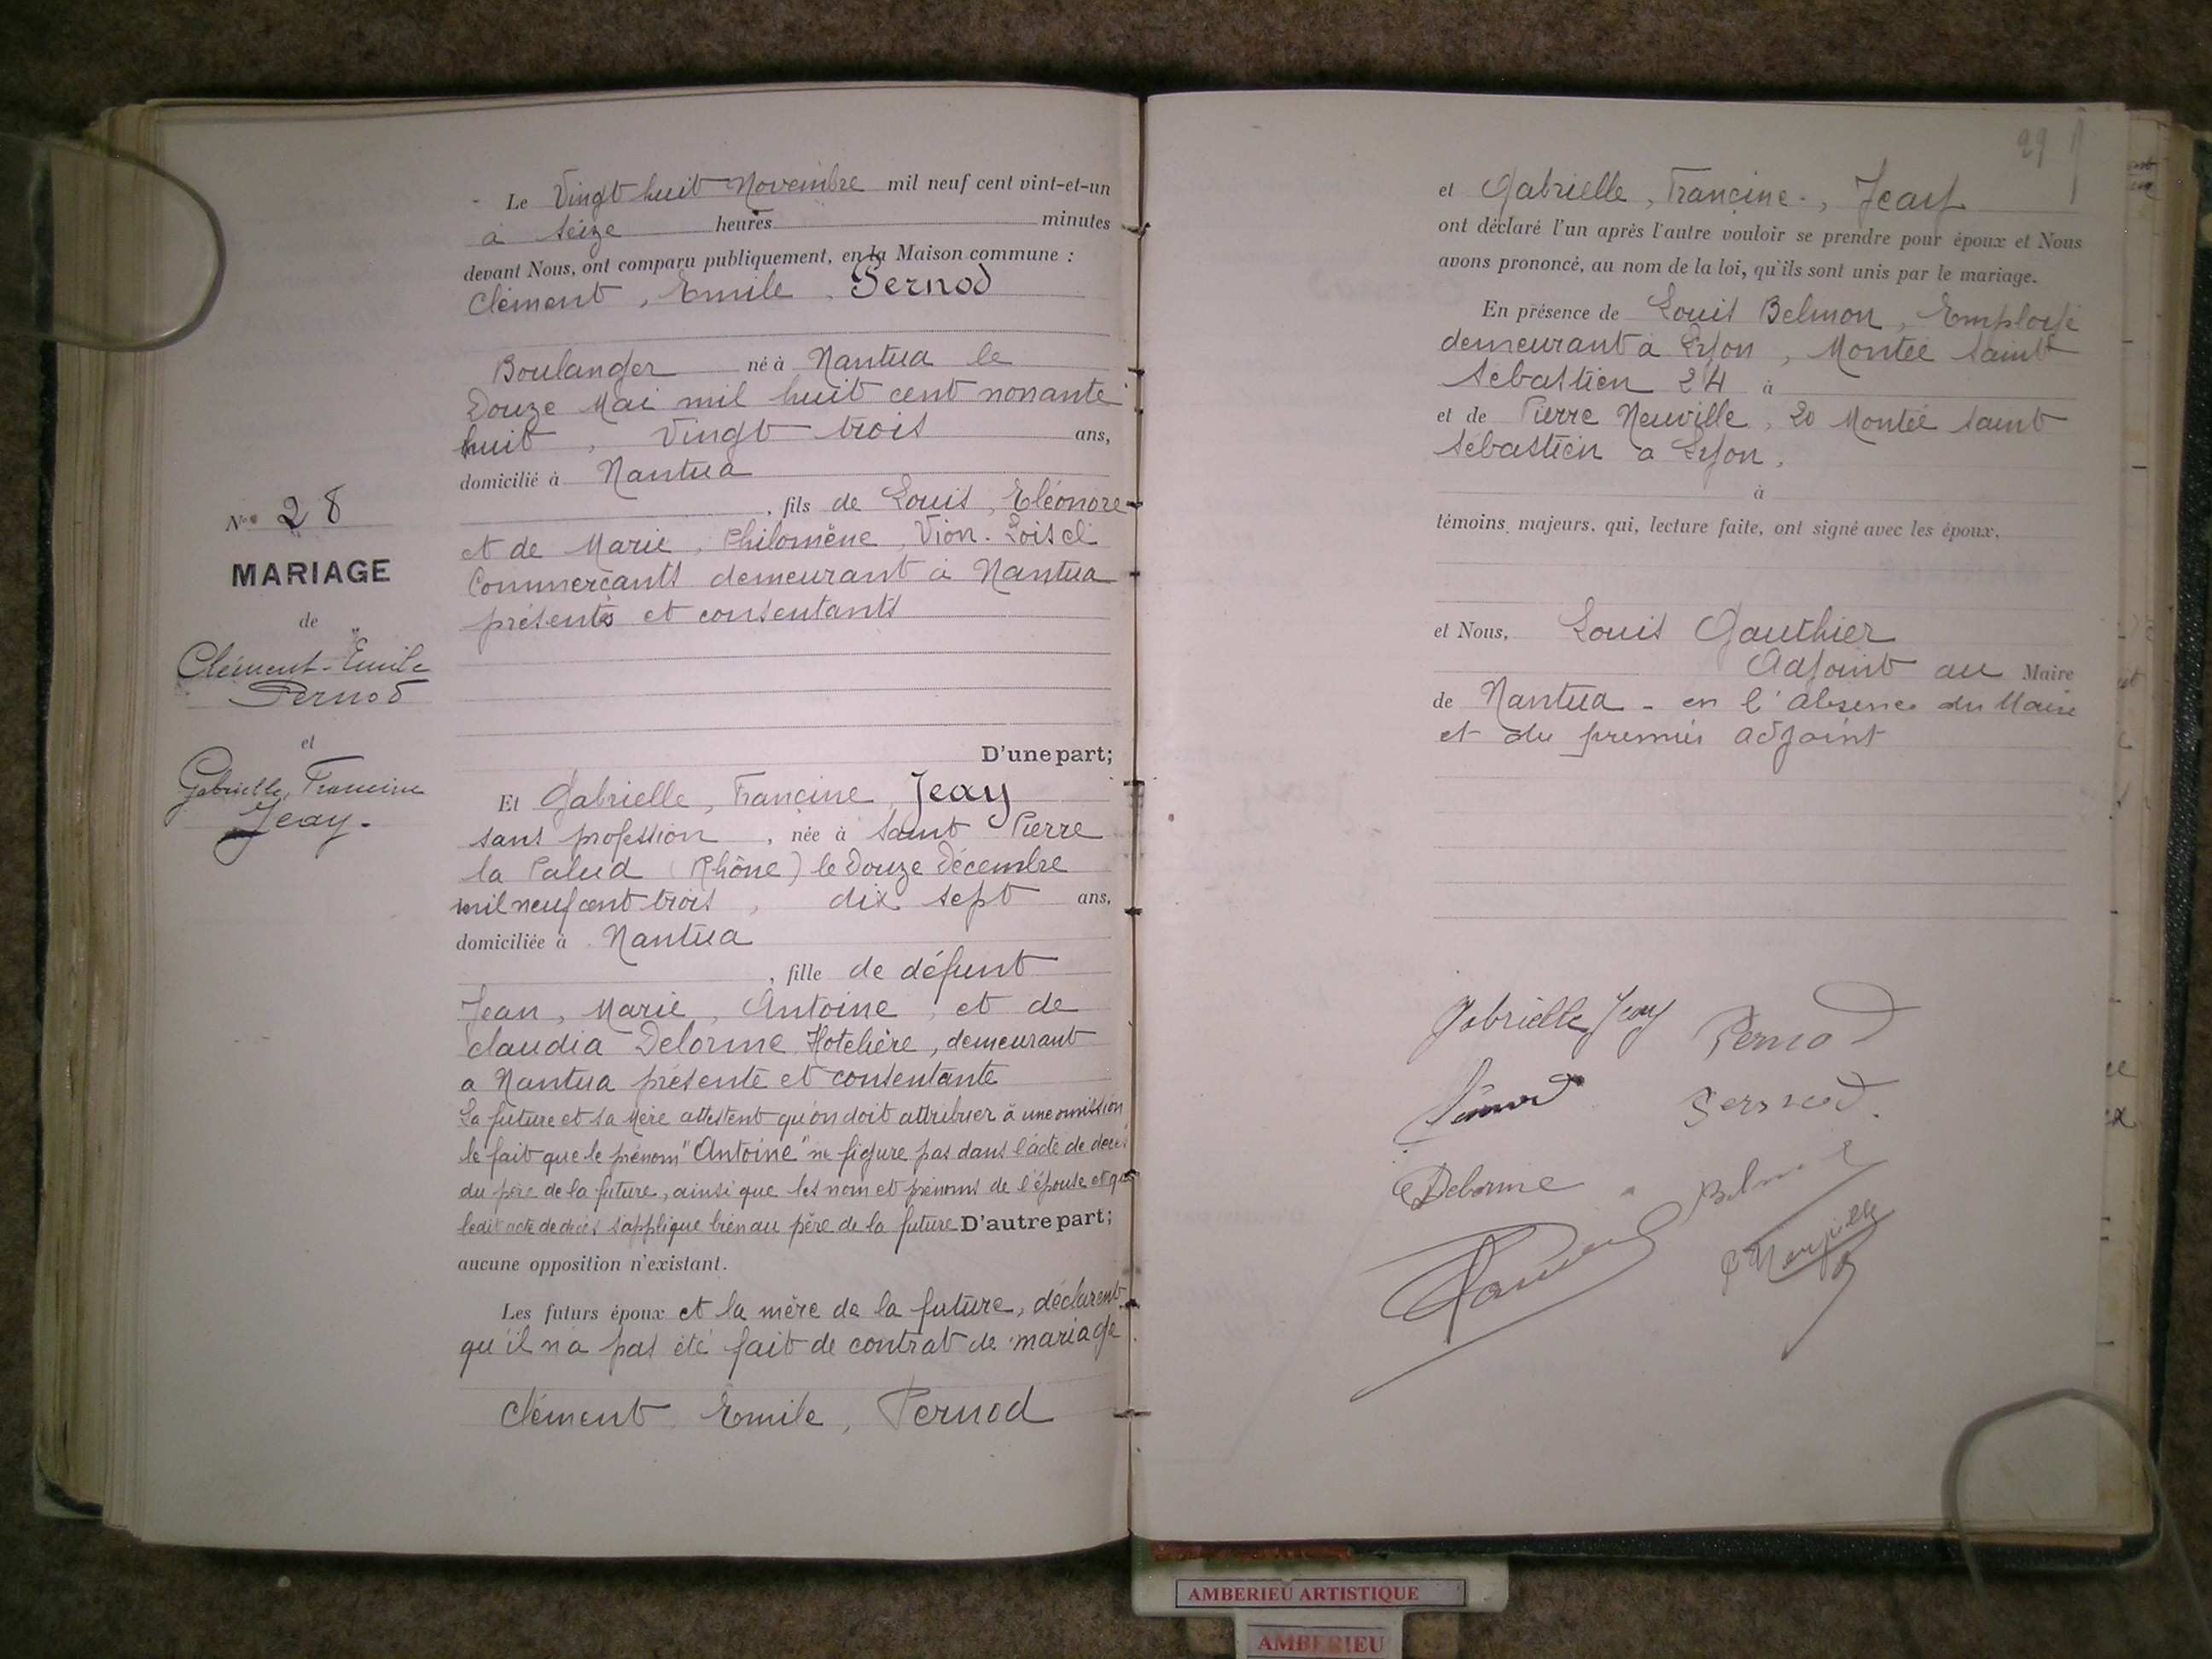 N° 28
MARIAGE
de
Clément-Emile
Pernod
et
Gabrielle, Francine
Jeay.
Le Vingt huit Novembre mil neuf cent vint-et-un
à seize heures minutes
devant Nous, ont comparu publiquement, en la Maison commune :
Clément, Emile, Pernod
Boulanger né à Nantua le
Douze Mai mil huit cent nonante
huit, Vingt trois ans,
domicilié à Nantua
, fils de Louis, Eléonore
et de Marie, Philomène, Vion-Loisel
Commerçants demeurant à Nantua
présents et consentants
D'une part;
Et Gabrielle, Francine, Jeay
sans profession, née à Saint Pierre
la Palud (Rhône) le Douze Décembre
mil neuf cent trois, dix sept ans,
domiciliée à Nantua
, fille de défunt
Jean, Marie, Antoine, et de
Claudia Delorme Hotelière, demeurant
a Nantua présente et consentante
La future et sa Mère attestent qu'on doit attribuer à une omission
le fait que le prénom "Antoine" ne figure pas dans l'acte de décès
du père de la future, ainsi que les nom et prénoms de l'épouse et que
ledit acte de décès s'applique bien au père de la future D'autre part;
aucune opposition n'existant.
Les futurs époux et la mère de la future, déclarent
qu'il n'a pas été fait de contrat de mariage
Clément, Emile, Pernod
29
et Gabrielle, Francine, Jeay
ont déclaré l'un après l'autre vouloir se prendre pour époux et Nous
avons prononcé, au nom de la loi, qu'ils sont unis par le mariage.
En présence de Louis Belmon, Employé
demeurant à Lyon, Montée Saint
Sébastien 24 à
et de Pierre Neuville, 20 Montée Saint
Sébastien à Lyon,
à
témoins majeurs, qui, lecture faite, ont signé avec les époux,
et Nous, Louis Gauthier
Adjoint au Maire
de Nantua - en l'absence du Maire
et du premier adjoint
Gabrielle Jeay Pernod
Pernod
Delorme
AMBERIEU ARTISTIQUE
AMBERIEU